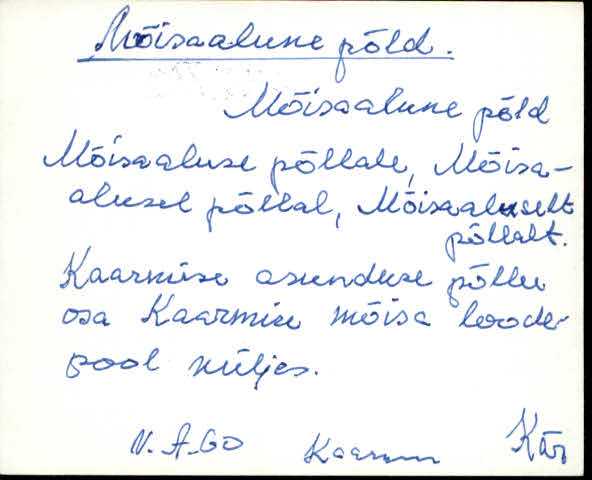 Mõisaalune põld.
Mõisaalune põld
Mõisaaluse põllale, Mõisa-
alusel põllal, Mõisaaluselt
põllalt.
Kaarmise asunduse põllu
osa Kaarmise mõisa loode-
pool küljes.
V. A-GO Kaarm Kär